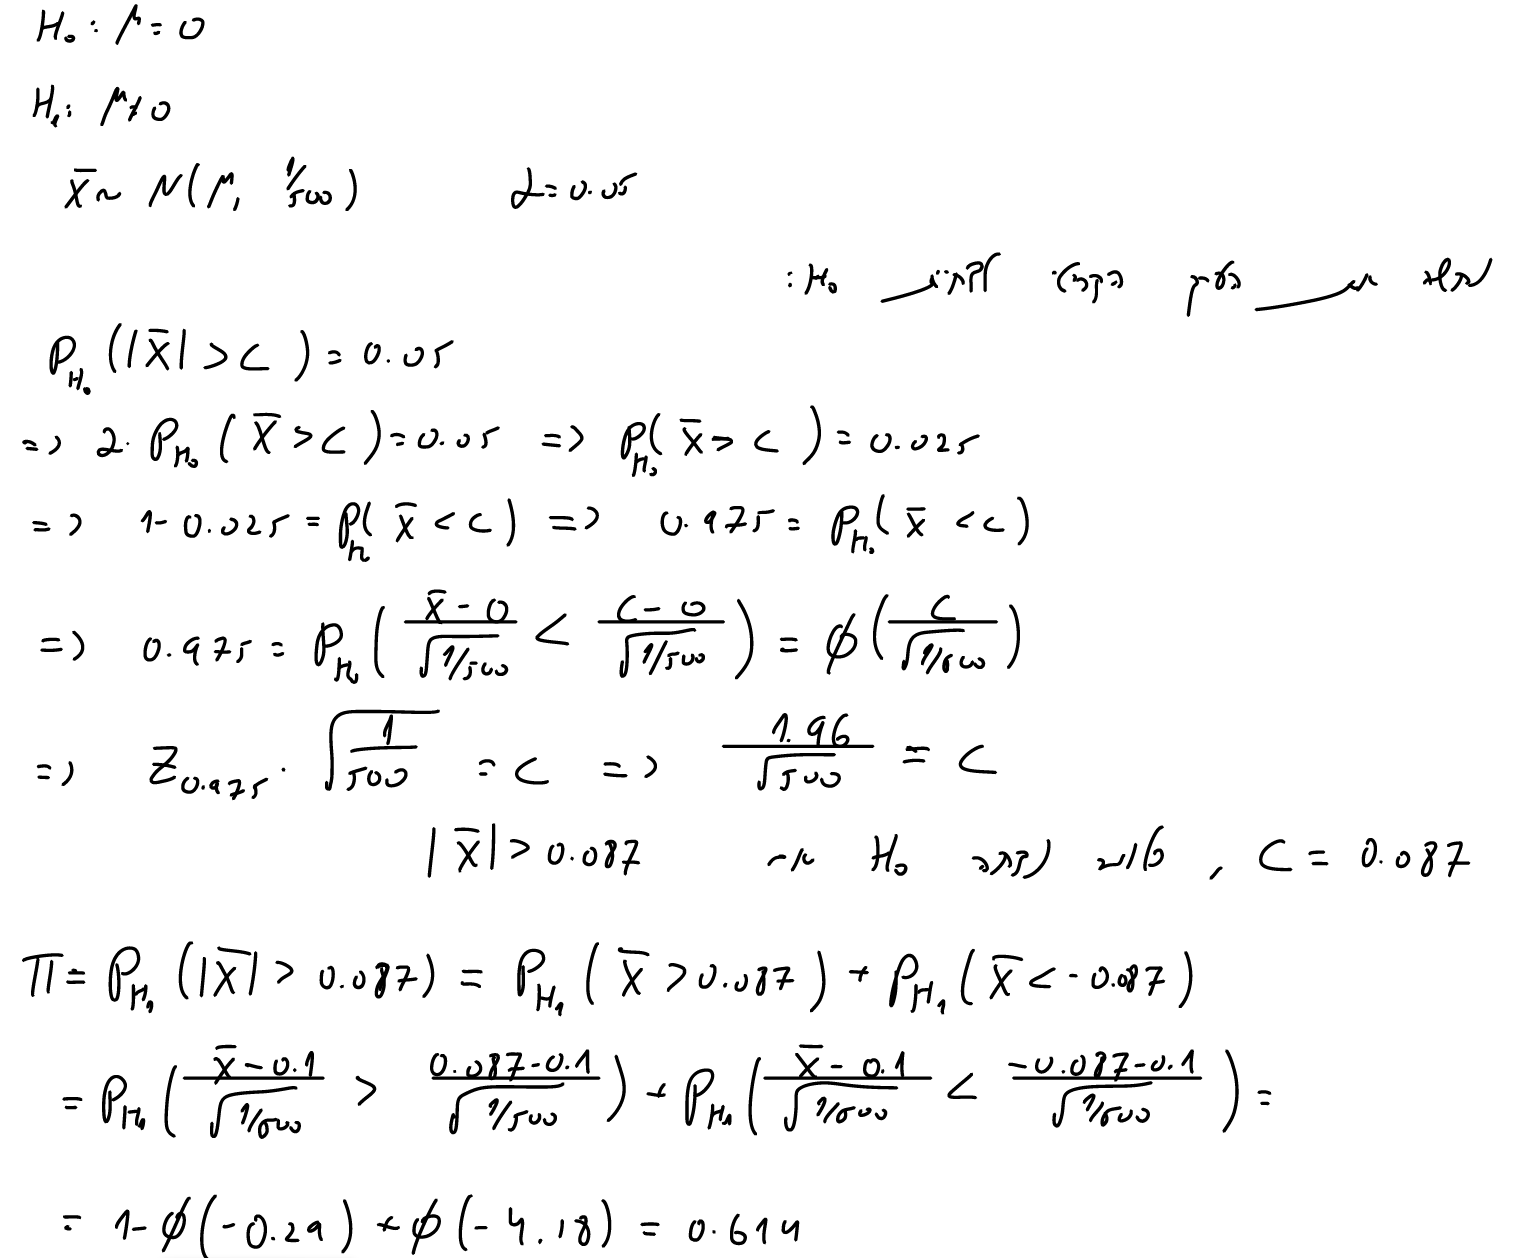 H₀: μ = 0
H₁: μ ≠ 0
X̄ ~ N(μ, 1/500) α = 0.05
נמצא את הערך הקריטי לדחיית H₀:
P_H₀(|X̄| > C) = 0.05
=> 2· P_H₀(X̄ > C) = 0.05 => P_H₀(X̄ > C) = 0.025
=> 1 - 0.025 = P_H₀(X̄ < C) => 0.975 = P_H₀(X̄ < C)
=> 0.975 = P_H₀((X̄ - 0)/√(1/500) < (C - 0)/√(1/500)) = ϕ(C/√(1/500))
=> Z_0.975 · √(1/500) = C => 1.96/√500 = C
C = 0.087, נדחה H₀ אם |X̄| > 0.087
π = P_H₁(|X̄| > 0.087) = P_H₁(X̄ > 0.087) + P_H₁(X̄ < -0.087)
= P_H₁((X̄ - 0.1)/√(1/500) > (0.087 - 0.1)/√(1/500)) + P_H₁((X̄ - 0.1)/√(1/500) < (-0.087 - 0.1)/√(1/500)) =
= 1 - ϕ(-0.29) + ϕ(-4.18) = 0.614